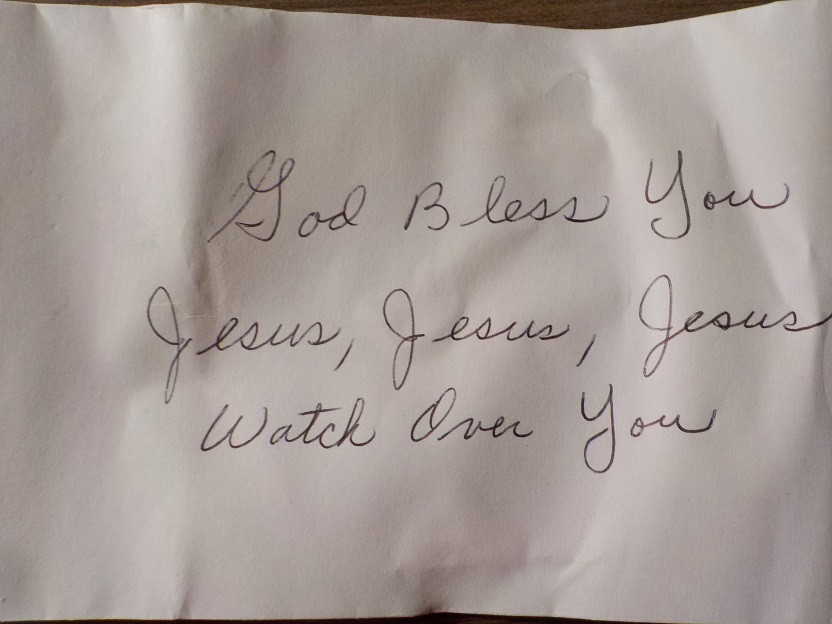 God Bless You
Jesus, Jesus, Jesus
Watch Over You